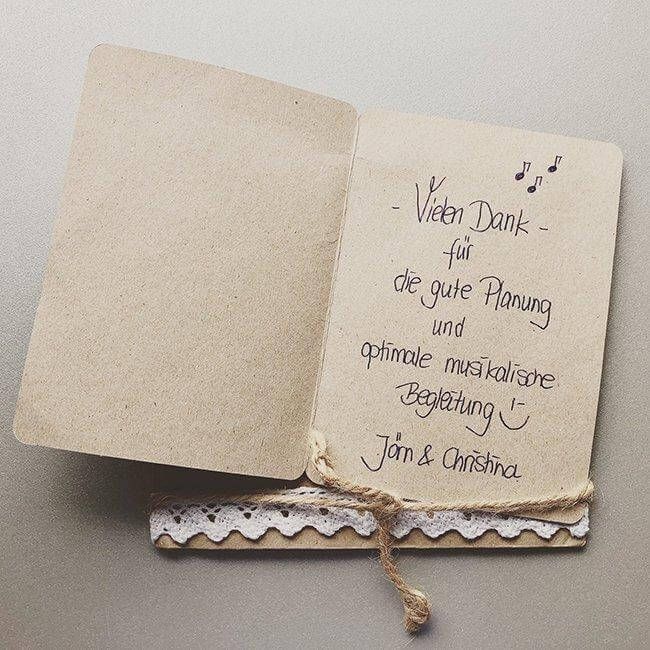 - Vielen Dank -
für
die gute Planung
und
optimale musikalische
Begleitung
Jörn & Christina